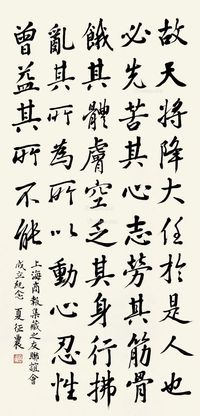 故天將降大任於是人也
必先苦其心志勞其筋骨
餓其體膚空乏其身行拂
亂其所為所以動心忍性
曾益其所不能
上海商報集藏之友聯誼會
成立紀念 夏征農